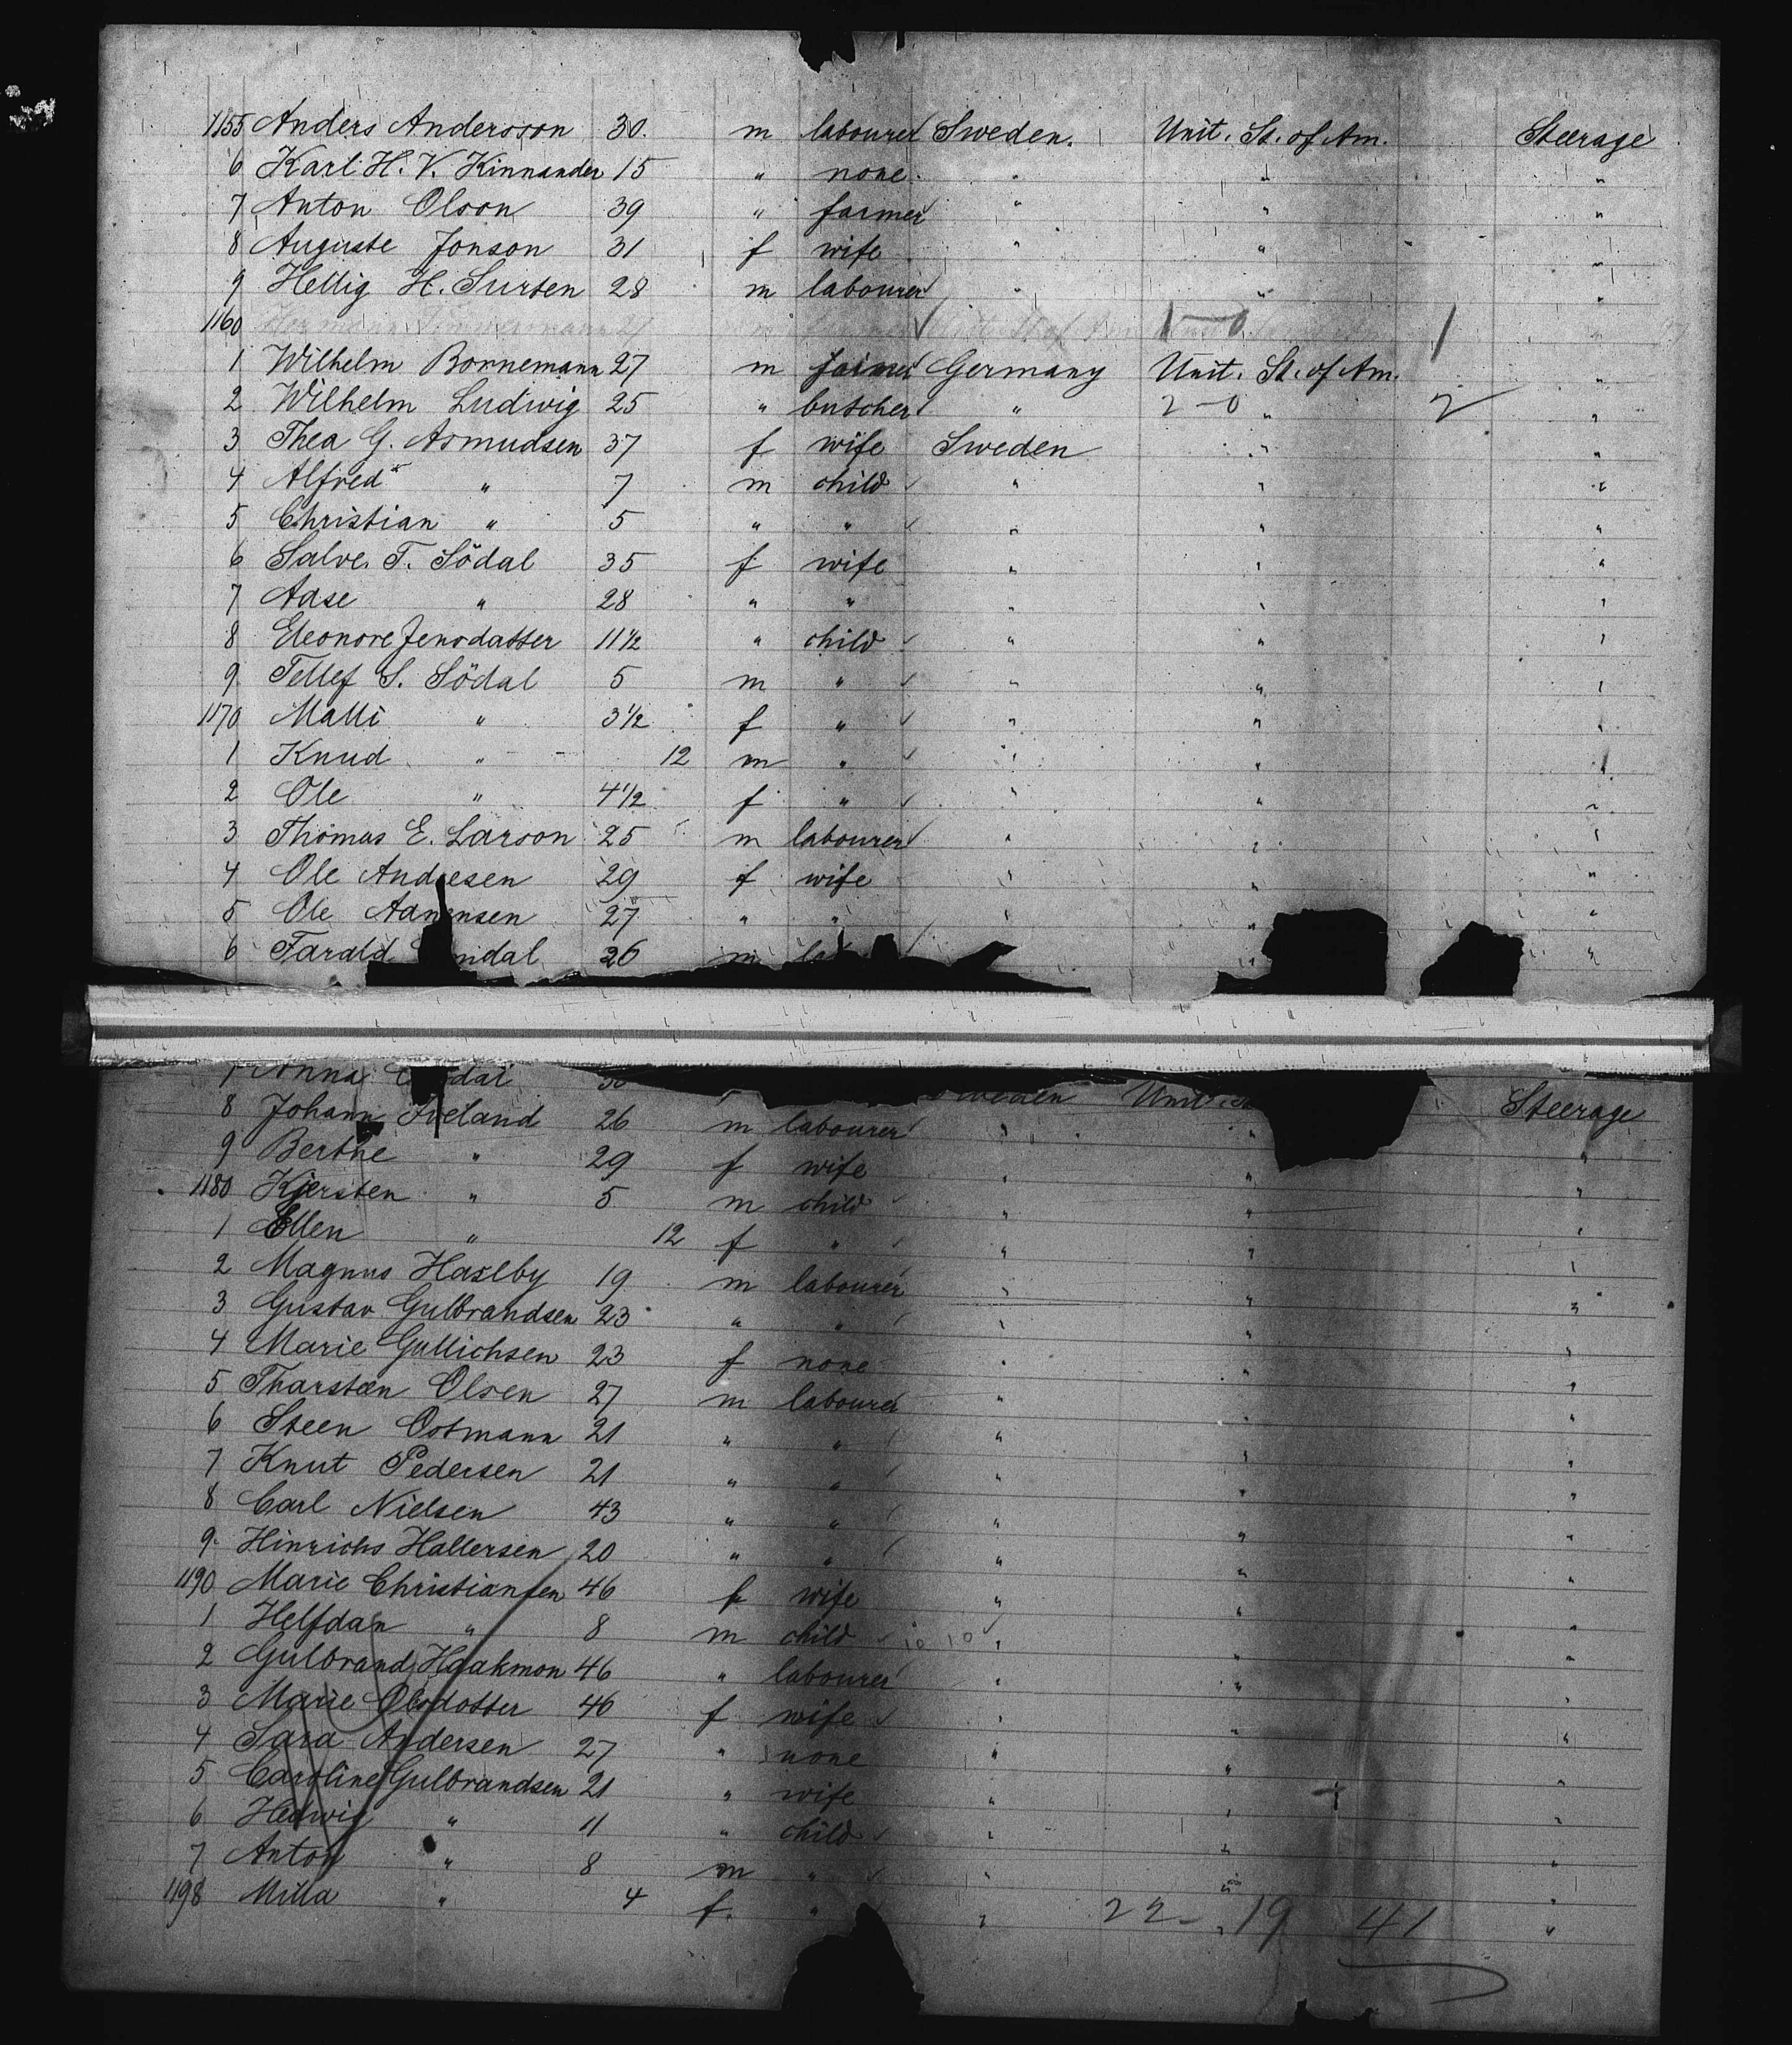 1155 Anders Andersson 30. m labourer Sweden. Unit. St. of Am. Steerage
6 Karl H. V. Kinnander 15 " none " " "
7 Anton Olson 39 " farmer " " "
8 Auguste Jonson 31 f wife " " "
9 Hellig H. Sursen 28 m labourer " " "
1160 1-0 1
1 Wilhelm Bornemann 27 m farmer Germany Unit. St. of Am. "
2 Wilhelm Ludwig 25 " butscher " 2-0 " 2 "
3 Thea G. Asmudsen 37 f wife Sweden " "
4 Alfred " 7 m child " " "
5 Christian " 5 " " " " "
6 Salve T. Södal 35 f wife " " "
7 Aase " 28 " " " " "
8 Eleonore Jensdatter 11 1/2 " child " " "
9 Tellef S. Södal 5 m " " " "
1170 Malli " 3 1/2 f " " " "
1 Knud " 12 m " " " "
2 Ole " 4 1/2 f " " " "
3 Thomas E. Larson 25 m labourer " " "
4 Ole Andresen 29 f wife " " "
5 Ole 27 " " " " "
6 Tarald 26 m " "
7 Anna Sweden Unit. Steerage
8 Johann Iveland 26 m labourer " " "
9 Berthe " 29 f wife " " "
1180 Kjersten " 5 m child " " "
1 Ellen " 12 f " " " "
2 Magnus Haslby 19 m labourer " " "
3 Gustav Gulbrandsen 23 " " " " "
4 Marie Gullichsen 23 f none " " "
5 Tharsten Olsen 27 m labourer " " "
6 Steen Ostmann 21 " " " " "
7 Knut Pedersen 21 " " " " "
8 Carl Nielsen 43 " " " " "
9 Hinrichs Hallersen 20 " " " " "
1190 Marie Christiansen 46 f wife " " "
1 Helfdan " 8 m child 10 10 " " "
2 Gulbrand Haakmon 46 " labourer " " "
3 Marie Olsdotter 46 f wife " " "
4 Sara Andersen 27 " none " " "
5 Caroline Gulbrandsen 21 " wife " " "
6 Hedwig " 11 " child " " "
7 Anton " 8 m " " " "
1198 Milla " 4 f. " " 22- " 19 41 "